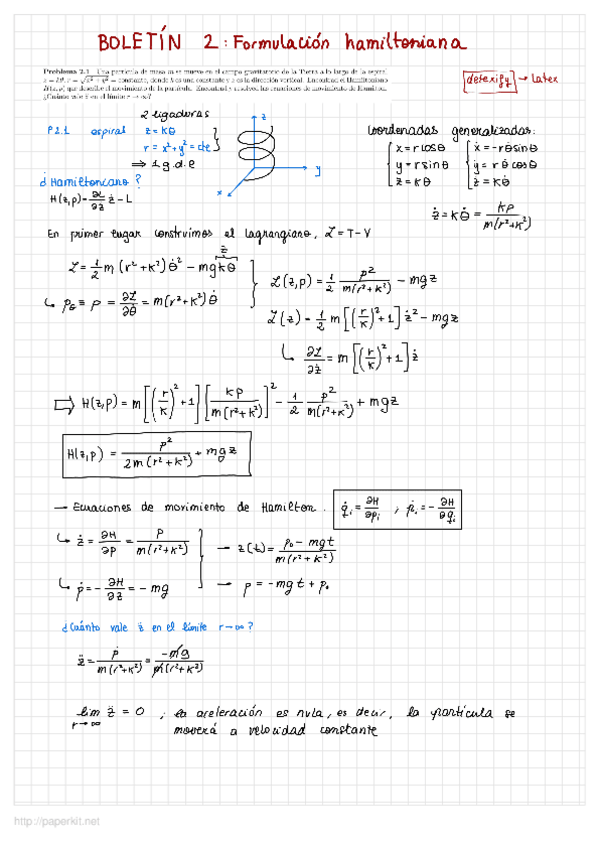 BOLETÍN 2: Formulación hamiltoniana
Problema 2.1 Una partícula de masa m se mueve en el campo gravitatorio de la Tierra a lo largo de la espiral
z = kθ, r = √(x² + y²) = constante, donde k es una constante y z es la dirección vertical. Encontrad el Hamiltoniano
H(z, p) que describe el movimiento de la partícula. Encontrad y resolved las ecuaciones de movimiento de Hamilton.
¿Cuánto vale z̈ en el límite r → ∞?
detexify → latex
2 ligaduras
P2.1 espiral z = kθ
r = x² + y² = cte
⇒ 1 g.d.e
z
y
x
Coordenadas generalizadas:
x = r cosθ ẋ = -rθ̇ sinθ
y = r sinθ ẏ = rθ̇ cosθ
z = kθ ż = kθ̇
¿Hamiltoniano?
H(z,p) = ∂L/∂ż ż - L
ż = kθ̇ = kp/m(r²+k²)
En primer lugar construimos el lagrangiano, L = T - V
z
L = 1/2 m (r² + k²) θ̇² - mgkθ
L(z,p) = 1/2 p²/m(r²+k²) - mgz
↳ pθ ≡ p = ∂L/∂θ̇ = m(r²+k²) θ̇
L(z) = 1/2 m [(r/k)² + 1] ż² - mgz
↳ ∂L/∂ż = m [(r/k)² + 1] ż
⇒ H(z,p) = m [(r/k)² + 1] [kp/m(r²+k²)]² - 1/2 p²/m(r²+k²) + mgz
H(z,p) = p²/2m(r²+k²) + mgz
→ Ecuaciones de movimiento de Hamilton. q̇ᵢ = ∂H/∂pᵢ ; ṗᵢ = -∂H/∂qᵢ
↳ ż = ∂H/∂p = p/m(r²+k²) → z(t) = p₀ - mgt/m(r²+k²)
↳ ṗ = -∂H/∂z = -mg → p = -mgt + p₀
¿Cuánto vale z̈ en el límite r→∞?
z̈ = ṗ/m(r²+k²) = -mg/m(r²+k²)
lim r→∞ z̈ = 0 ; la aceleración es nula, es decir, la partícula se
moverá a velocidad constante
http://paperkit.net